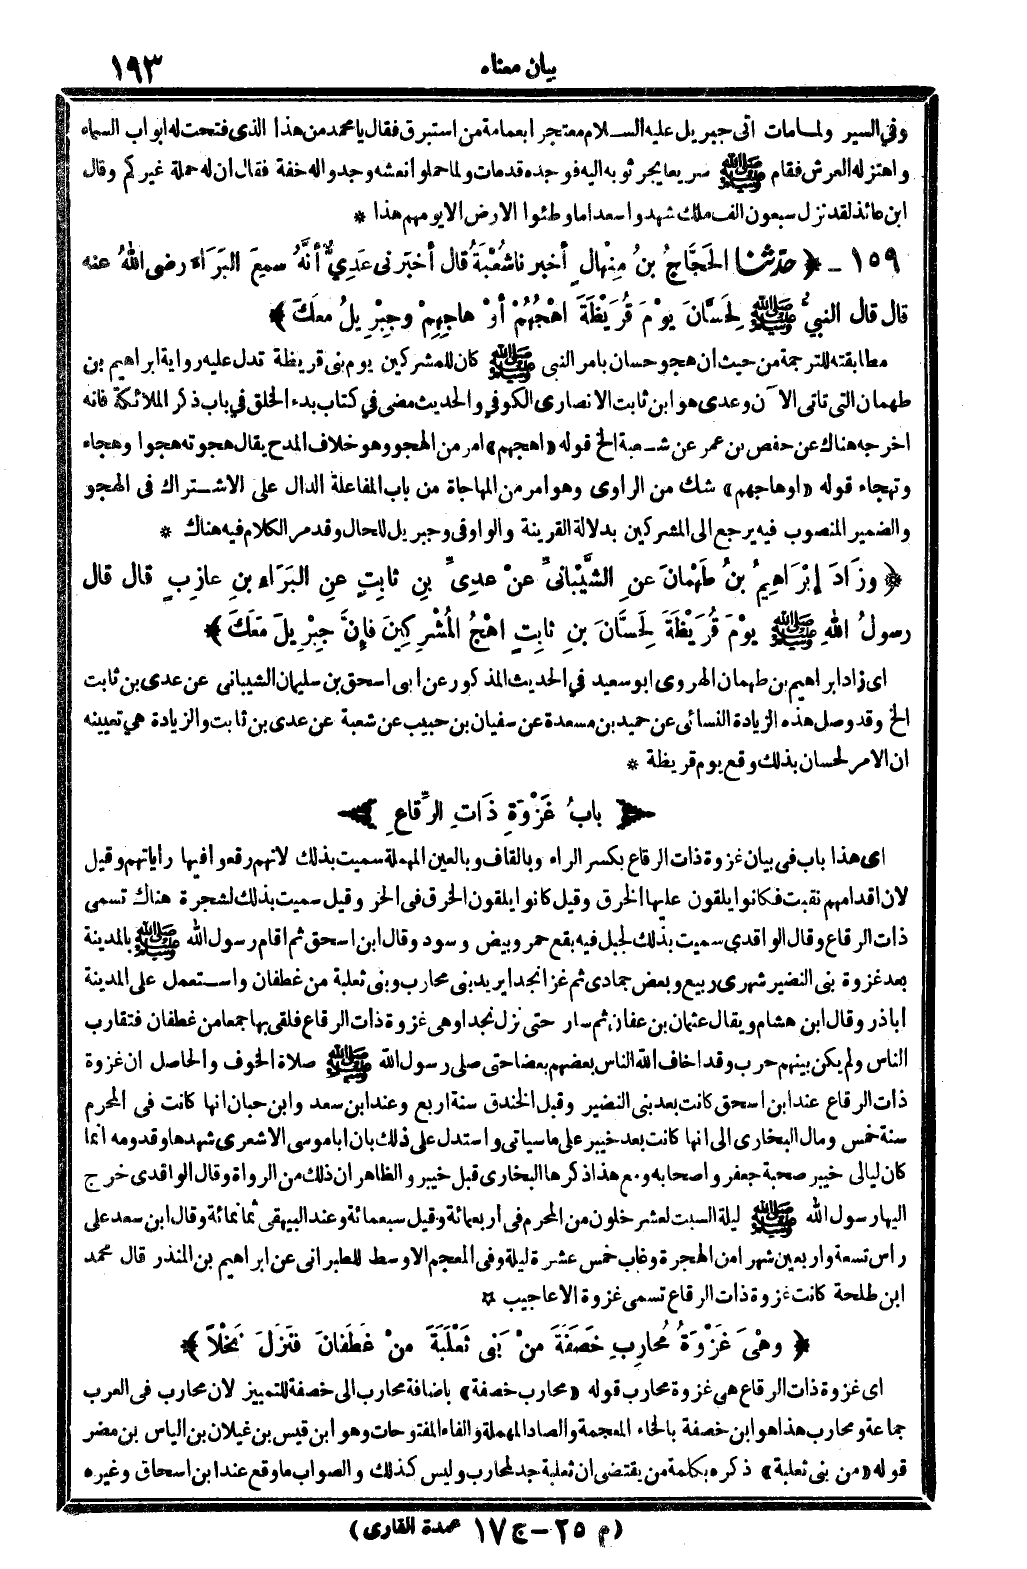 بيان معناه ١٩٣
وفي السير ولمامات اتى جبريل عليه السلام معتجرا بعمامة من استبرق فقال يا محمد من هذا الذى فتحت له ابواب السماء
واهتز له العرش فقام ﷺ سريعا يجر ثوبه اليه فوجده قد مات ولما حملوا نعشه وجدوا له خفة فقال ان له حملة غيركم وقال
ابن عائذ لقد نزل سبعون الف ملك شهدوا سعدا ما وطئوا الارض الا يومهم هذا *
١٥٩ - ﴿ حدثنا الحَجَّاجُ بنُ مِنْهالٍ أخبرنا شُعْبَةُ قال أخبَرَنى عَدِىٌّ أنَّهُ سَمِعَ البَرَاءَ رضى اللهُ عنه
قال قال النبىُّ ﷺ لِحَسَّانَ يوْمَ قُرَيْظَةَ اهْجُهُمْ أوْ هاجِهِمْ وجِبْرِيلُ معَكَ ﴾
مطابقته للترجمة من حيث ان هجو حسان بامر النبى ﷺ كان للمشركين يوم بنى قريظة تدل عليه رواية ابراهيم بن
طهمان التى تاتى الآن وعدى هو ابن ثابت الانصارى الكوفي والحديث مضى في كتاب بدء الخلق في باب ذكر الملائكة فانه
اخرجه هناك عن حفص بن عمر عن شعبة الخ قوله «اهجهم» امر من الهجو وهو خلاف المدح يقال هجوته هجوا وهجاء
وتهجاء قوله «اوهاجهم» شك من الراوى وهو امر من المهاجاة من باب المفاعلة الدال على الاشتراك فى الهجو
والضمير المنصوب فيه يرجع الى المشركين بدلالة القرينة والواو فى وجبريل للحال وقد مر الكلام فيه هناك *
﴿ وزَادَ إبْرَاهِيمُ بنُ طَهْمَانَ عنِ الشَّيْبانىِّ عنْ عدِىِّ بنِ ثابِتٍ عنِ البَرَاءِ بنِ عازِبٍ قال قال
رسولُ اللهِ ﷺ يوْمَ قُرَيْظَةَ لِحَسَّانَ بنِ ثابِتٍ اهْجُ المُشْرِكِينَ فإنَّ جِبْرِيلَ معَكَ ﴾
اى زاد ابراهيم بن طهمان الهروى ابو سعيد في الحديث المذكور عن ابى اسحق بن سليمان الشيبانى عن عدى بن ثابت
الخ وقد وصل هذه الزيادة النسائى عن حميد بن مسعدة عن سفيان بن حبيب عن شعبة عن عدى بن ثابت والزيادة هي تعيينه
ان الامر لحسان بذلك وقع يوم قريظة *
بابُ غَزْوَةِ ذَاتِ الرِّقاعِ
اى هذا باب فى بيان غزوة ذات الرقاع بكسر الراء وبالقاف وبالعين المهملة سميت بذلك لانهم رقعوا فيها راياتهم وقيل
لان اقدامهم نقبت فكانوا يلقون عليها الخرق وقيل كانوا يلقون الخرق فى الخر وقيل سميت بذلك لشجرة هناك تسمى
ذات الرقاع وقال الواقدى سميت بذلك لجبل فيه بقع حمر وبيض وسود وقال ابن اسحق ثم اقام رسول الله ﷺ بالمدينة
بعد غزوة بنى النضير شهرى ربيع وبعض جمادى ثم غزا نجدا يريد بنى محارب وبنى ثعلبة من غطفان واستعمل على المدينة
اباذر وقال ابن هشام ويقال عثمان بن عفان ثم سار حتى نزل نجدا وهى غزوة ذات الرقاع فلقى بها جمعا من غطفان فتقارب
الناس ولم يكن بينهم حرب وقد اخاف الله الناس بعضهم بعضا حتى صلى رسول الله ﷺ صلاة الخوف والحاصل ان غزوة
ذات الرقاع عند ابن اسحق كانت بعد بنى النضير وقبل الخندق سنة اربع وعند ابن سعد وابن حبان انها كانت فى المحرم
سنة خمس ومال البخارى الى انها كانت بعد خيبر على ماسياتى واستدل على ذلك بان اباموسى الاشعرى شهدها وقدومه انما
كان ليالى خيبر صحبة جعفر واصحابه ومع هذا ذكرها البخارى قبل خيبر والظاهر ان ذلك من الرواة وقال الواقدى خرج
اليها رسول الله ﷺ ليلة السبت لعشر خلون من المحرم فى اربعمائة وقيل سبعمائة وعند البيهقى ثمانمائة وقال ابن سعد على
راس تسعة واربعين شهرا من الهجرة وغاب خمس عشرة ليلة وفى المعجم الاوسط للطبرانى عن ابراهيم بن المنذر قال محمد
ابن طلحة كانت غزوة ذات الرقاع تسمى غزوة الاعاجيب *
﴿ وهْىَ غَزْوَةُ مُحارِبِ خَصَفَةَ منْ بَنى ثَعْلَبَةَ منْ غَطَفَانَ فنَزَلَ نَخْلاً ﴾
اى غزوة ذات الرقاع هى غزوة محارب قوله «محارب خصفة» باضافة محارب الى خصفة للتمييز لان محارب فى العرب
جماعة ومحارب هذا هو ابن خصفة بالخاء المعجمة والصاد المهملة والفاء المفتوحات وهو ابن قيس بن غيلان بن الياس بن مضر
قوله «من بنى ثعلبة» ذكره بكلمة من يقتضى ان ثعلبة جد لمحارب وليس كذلك والصواب ماوقع عند ابن اسحاق وغيره
(م ٢٥ - ج ١٧ عمدة القارى)